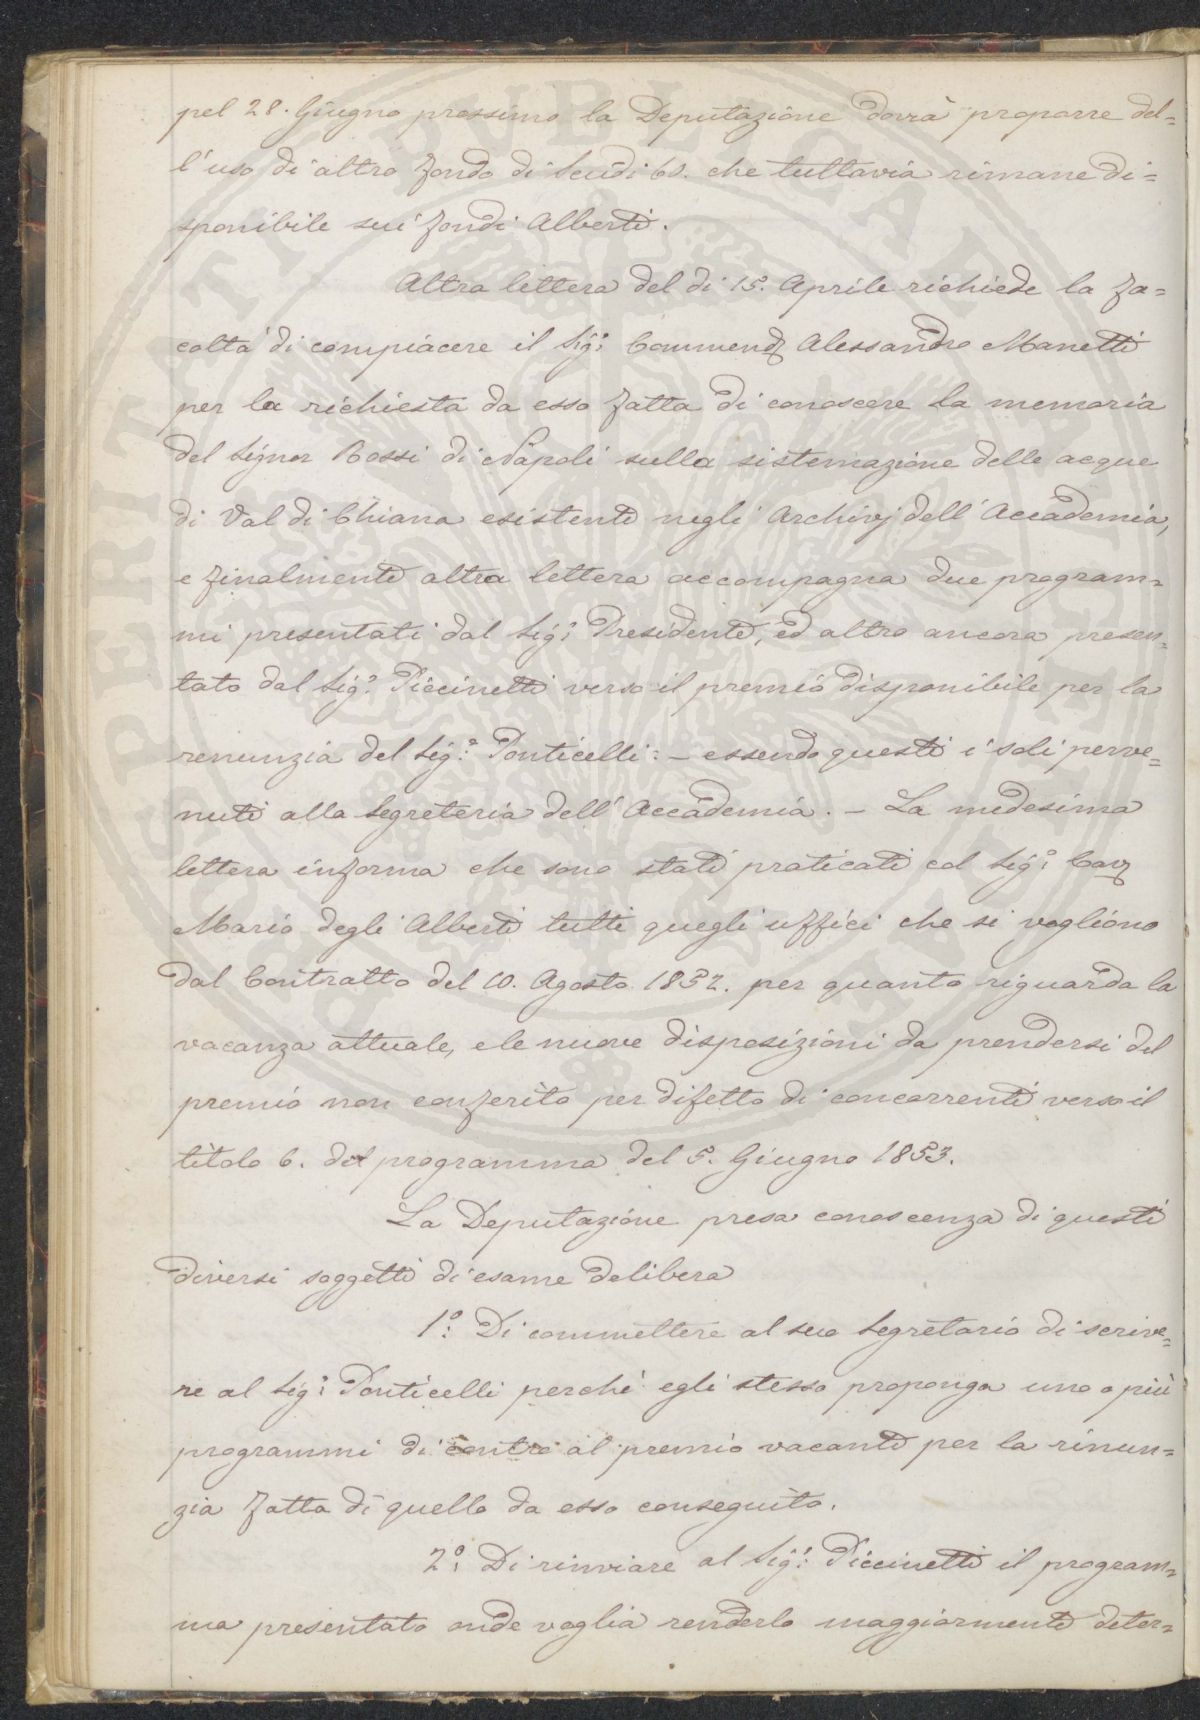 pel 28. Giugno prossimo la Deputazione dovrà proporre del=
l'uso di altro fondo di Scudi 60. che tuttavia rimane di=
sponibile sui fondi Alberti.
Altra lettera del dì 15. Aprile richiede la fa=
coltà di compiacere il Sig: Commend Alessandro Manetti
per la richiesta da esso fatta di conoscere la memoria
del Signor Rossi di Napoli sulla sistemazione delle acque
di Val di Chiana esistente negli Archivj dell' Accademia,
e finalmente altra lettera accompagna due program=
mi presentati dal Sig: Presidente, ed altro ancora presen=
tato dal Sig: Piccinetti verso il premio disponibile per la
renunzia del Sig: Ponticelli: - essendo questi i soli perve=
nuti alla Segreteria dell' Accademia. - La medesima
lettera informa che sono stati praticati col Sig: Cav
Mario degli Alberti tutti quegli uffici che si vogliono
dal Contratto del 10. Agosto 1852. per quanto riguarda la
vacanza attuale, e le nuove disposizioni da prendersi del
premio non conferito per difetto di concorrenti verso il
titolo 6. del programma del 5. Giugno 1853.
La Deputazione presa conoscenza di questi
diversi soggetti di esame delibera
1º: Di commettere al suo Segretario di scrive=
re al Sig: Ponticelli perchè egli stesso proponga uno o più
programmi di contro al premio vacante per la rinun=
zia fatta di quello da esso conseguito.
2º: Di rinviare al Sig: Piccinetti il program=
ma presentato onde voglia renderlo maggiormente deter=
PROSPERITATI PUBLICAE